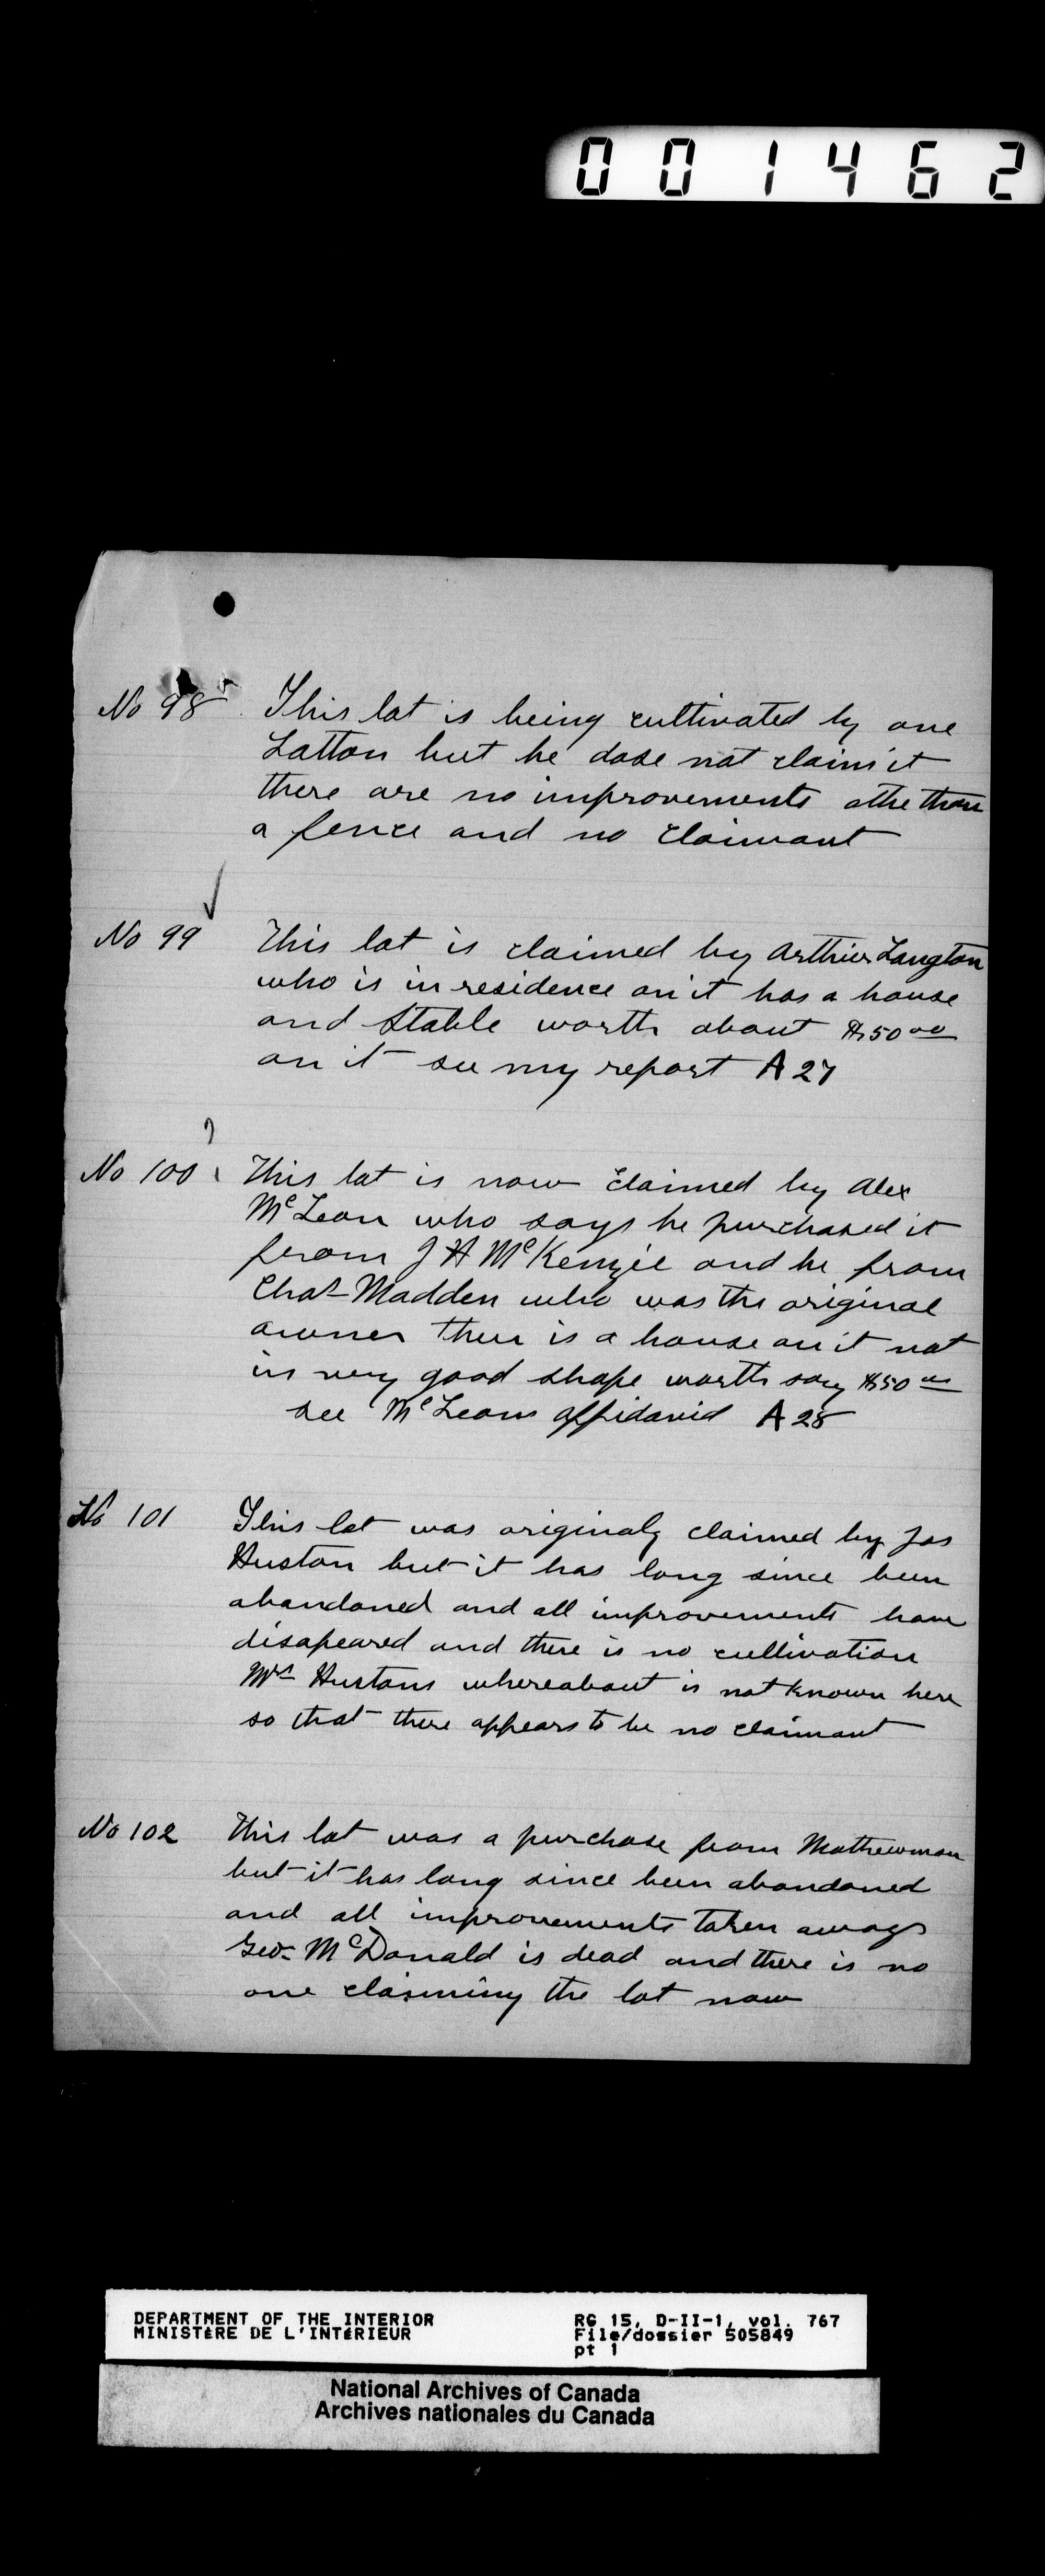 001462
No 98 This lot is being cultivated by one
Latton but he dose not claim it
there are no improvements othe than
a fence and no claimant
No 99 This lot is claimed by Arthur Langton
who is in residence on it has a house
and Stable worth about $50 00
on it see my report A 27
No 100 This lot is now claimed by Alex
McLean who says he purchased it
from J H McKenzie and he from
Chas Madden who was the original
owner there is a house on it not
in very good shape worth say $50 00
see McLeans affidavid A 28
No 101 This lot was originaly claimed by Jas
Huston but it has long since been
abandoned and all improvements have
disapeared and there is no cultivation
Mrs Hustons whereabout is not known here
so that there appears to be no claimant
No 102 This lot was a purchase from Mathewman
but it has long since been abandoned
and all improvements taken away
Geo. McDonald is dead and there is no
one claiming the lot now
DEPARTMENT OF THE INTERIOR RG 15, D-II-1, vol. 767
MINISTÈRE DE L'INTÉRIEUR File/dossier 505849
pt 1
National Archives of Canada
Archives nationales du Canada